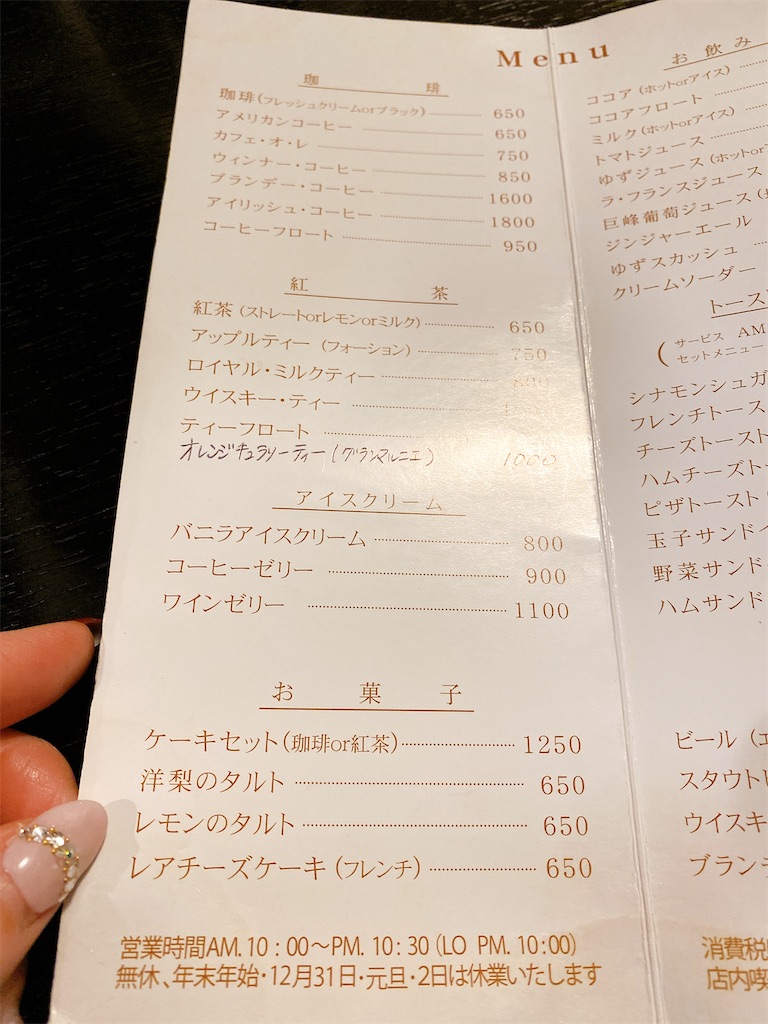 Menu
珈琲
珈琲(フレッシュクリームorブラック) 650
アメリカンコーヒー 650
カフェ・オ・レ 750
ウィンナー・コーヒー 850
ブランデー・コーヒー 1600
アイリッシュ・コーヒー 1800
コーヒーフロート 950
紅茶
紅茶(ストレートorレモンorミルク) 650
アップルティー(フォーション) 750
ロイヤル・ミルクティー
ウイスキー・ティー
ティーフロート
オレンジキュラソーティー(グランマルニエ) 1000
アイスクリーム
バニラアイスクリーム 800
コーヒーゼリー 900
ワインゼリー 1100
お菓子
ケーキセット(珈琲or紅茶) 1250
洋梨のタルト 650
レモンのタルト 650
レアチーズケーキ(フレンチ) 650
営業時間AM.10:00〜PM.10:30(LO PM.10:00)
無休、年末年始・12月31日・元旦・2日は休業いたします
お飲み
ココア(ホットorアイス)
ココアフロート
ミルク(ホットorアイス)
トマトジュース
ゆずジュース(ホットor
ラ・フランスジュース
巨峰葡萄ジュース(
ジンジャーエール
ゆずスカッシュ
クリームソーダー
トース
(サービス AM
セットメニュー
シナモンシュガ
フレンチトース
チーズトースト
ハムチーズト
ピザトースト
玉子サンド
野菜サンド
ハムサンド
ビール(
スタウト
ウイスキ
ブラン
消費税
店内喫